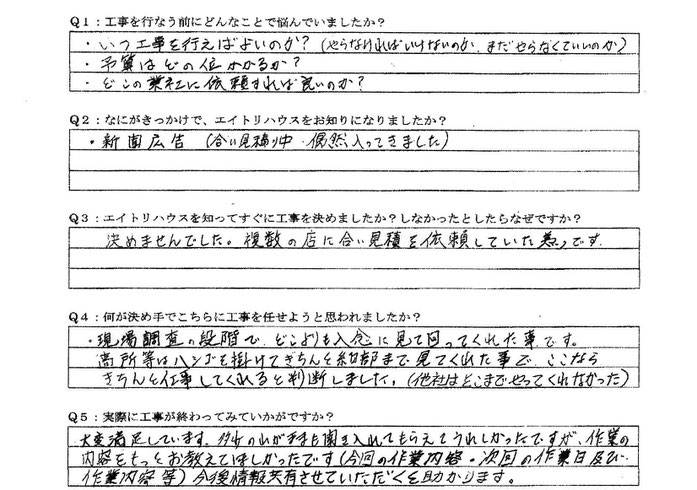 Q1：工事を行なう前にどんなことで悩んでいましたか？
・いつ工事を行えばよいのか？（やらなければいけないのか、まだやらなくていいのか）
・予算はどの位かかるか？
・どこの業社に依頼すれば良いのか？
Q2：なにがきっかけで、エイトリハウスをお知りになりましたか？
・新聞広告（合い見積り中・偶然入ってきました）
Q3：エイトリハウスを知ってすぐに工事を決めましたか？しなかったとしたらなぜですか？
決めませんでした。複数の店に合い見積を依頼していた為です
Q4：何が決め手でこちらに工事を任せようと思われましたか？
・現場調査の段階で、どこよりも入念に見て回ってくれた事です。
高所等はハシゴを掛けてきちんと細部まで見てくれた事で、ここなら
きちんと仕事してくれると判断しました。（他社はどこまでやってくれなかった）
Q5：実際に工事が終わってみていかがですか？
大変満足しています。多少のわが手も聞き入れてもらえてうれしかったですが、作業の
内容をもっとお教えてほしかったです（今回の作業内容・次回の作業日及び
作業内容等）今後情報共有させていただくを助かります。